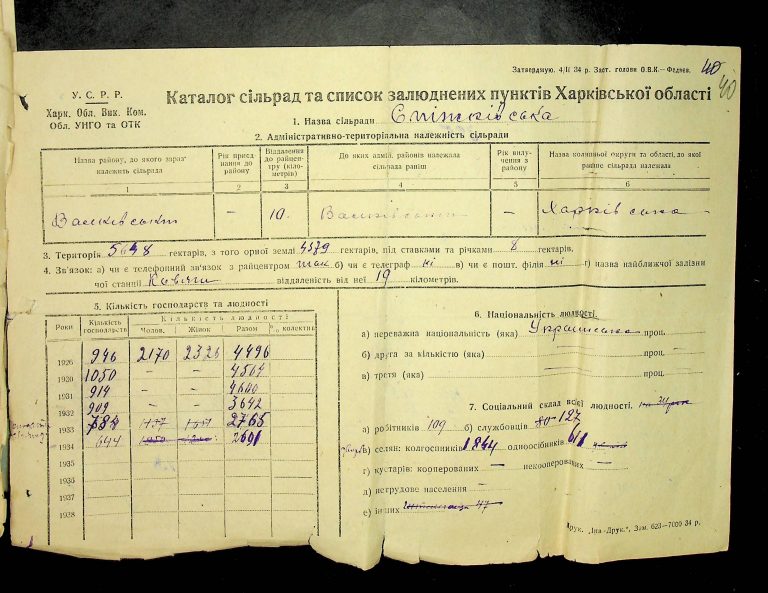 Затверджую. 4/II 34 р. Заст. голови О.В.К.—Феднев. 40
40
У. С. Р. Р.
Харк. Обл. Вик. Ком.
Обл. УНГО та ОТК
Каталог сільрад та список залюднених пунктів Харківської області
1. Назва сільради
2. Адміністративно-територіальна належність сільради
Назва району, до якого зараз належить сільрада
Рік приєднання до району
Віддалення до райцентру (кілометрів)
До яких адмін. районів належала сільрада раніш
Рік вилучення з району
Назва колишньої округи та області, до якої раніше сільрада належала
1 2 3 4 5 6
Валківський — 10. Валківський — Харківська
3. Територія 5648 гектарів, з того орної землі 4579 гектарів, під ставками та річками 8 гектарів.
4. Зв'язок: а) чи є телефонний зв'язок з райцентром так б) чи є телеграф ні в) чи є пошт. філія ні г) назва найближчої залізничної станції Ков'яги віддаленість від неї 19 кілометрів.
5. Кількість господарств та людності
Роки Кількість господарств Кількість людності
Чолов. Жінок Разом % колектив.
1926 946 2170 2326 4496
1930 1050 — — 4564
1931 914 — — 4600
1932 909 — — 3642
1933 784 2765
1934 644 2691
1935
1936
1937
1938
6. Національність людності.
а) переважна національність (яка) Українська проц.
б) друга за кількістю (яка) — проц.
в) третя (яка) — проц.
7. Соціальний склад всієї людності.
а) робітників 109 б) службовців 80 127
в) селян: колгоспників 1844 одноосібників 611
г) кустарів: кооперованих — некооперованих —
д) нетрудове населення —
е) інших 47
Друк. „Іна-Друк.", Зам. 623—7000 34 р.